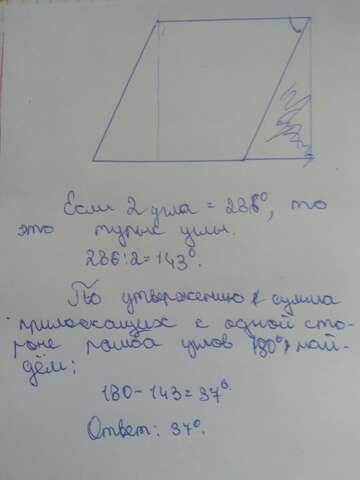 Если 2 угла = 286°, то
это тупые углы.
286:2=143°.
По утверждению (сумма
прилежащих к одной сто-
роне ромба углов 180°) най-
дём:
180-143=37°.
Ответ: 37°.